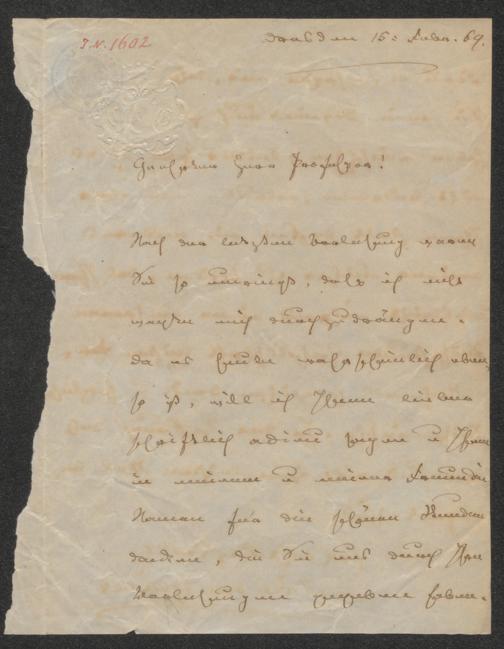 I.N. 1602
Dresden 15: Febr. 69.
Geehrter Herr Professor!
Nach der letzten Vorlesung waren
Sie so umringt, daß ich nicht
wagte mich durchzudrängen.
Da es heute wahrscheinlich eben
so ist, will ich Ihnen lieber
schriftlich adieu sagen u Ihnen
in meinem u meiner Freundin
Namen für die schönen Stunden
danken, die Sie uns durch Ihre
Vorlesungen gegeben haben.